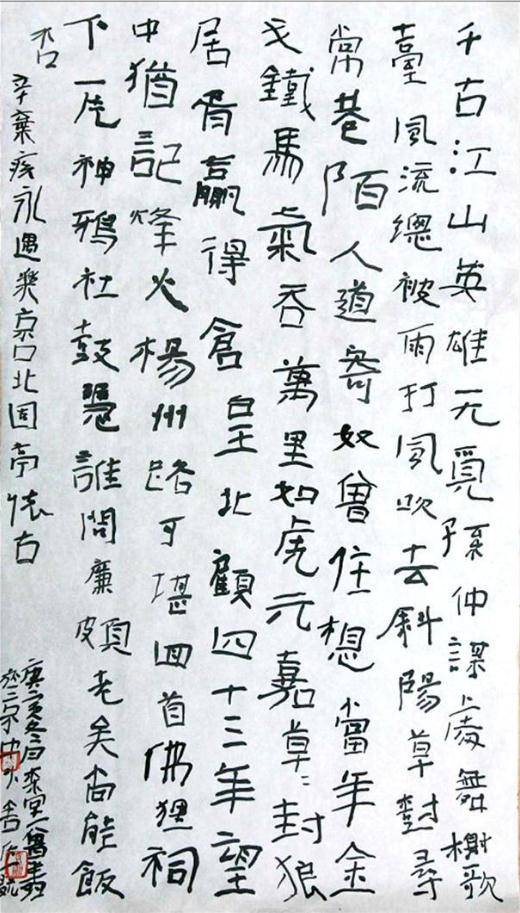 千古江山英雄无覓孫仲謀處舞榭歌
臺風流總被雨打風吹去斜陽草樹尋
常巷陌人道寄奴曾住想當年金
戈鐵馬氣吞萬里如虎元嘉草々封狼
居胥贏得倉皇北顧四十三年望
中猶記烽火楊州路可堪回首佛狸祠
下一片神鴉社鼓憑誰問廉頗老矣尚能飯
否
辛棄疾永遇樂京口北固亭懷古
庚寅冬日